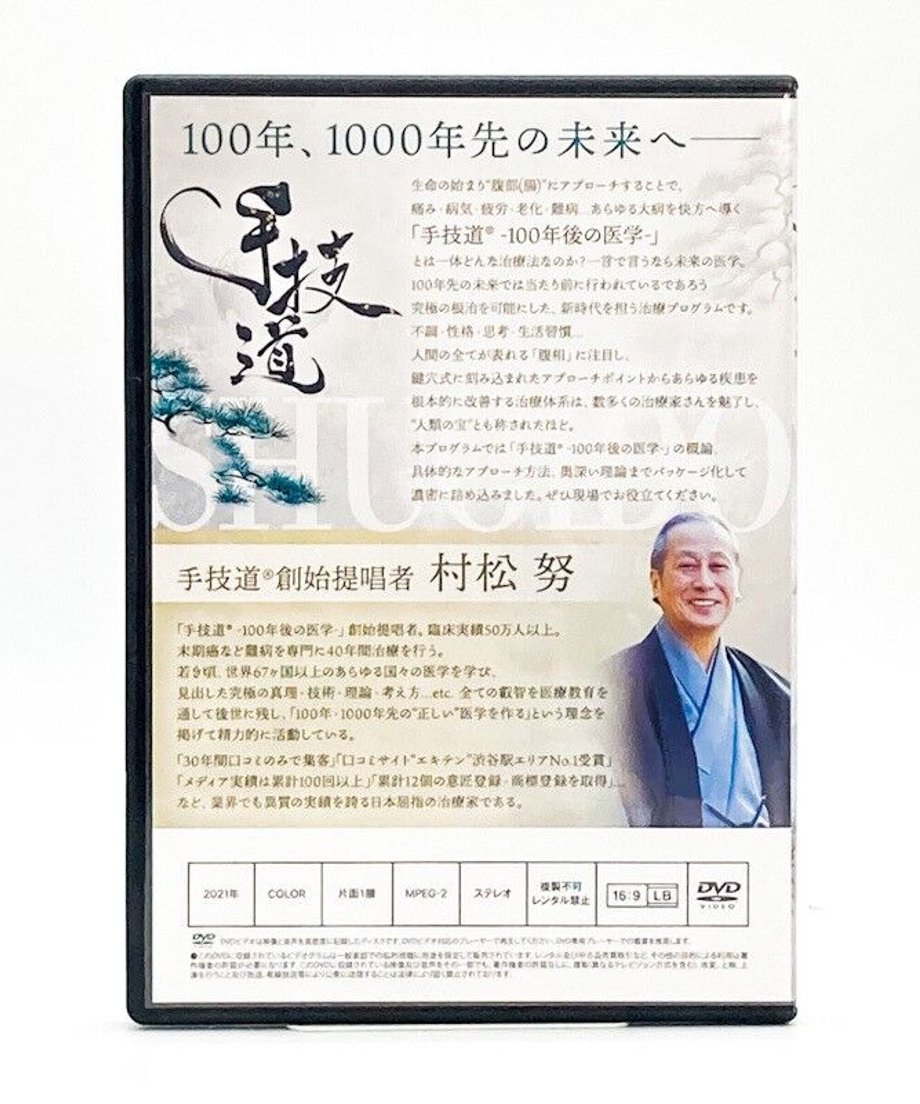 100年、1000年先の未来へ──
手技道
生命の始まり“腹部(腸)”にアプローチすることで、
痛み・病気・疲労・老化・難病…あらゆる大病を快方へ導く
「手技道® -100年後の医学-」
とは一体どんな治療法なのか?一言で言うなら未来の医学。
100年先の未来では当たり前に行われているであろう
究極の根治を可能にした、新時代を担う治療プログラムです。
不調・性格・思考・生活習慣…
人間の全てが表れる「腹相」に注目し、
鍵穴式に刻み込まれたアプローチポイントからあらゆる疾患を
根本的に改善する治療体系は、数多くの治療家さんを魅了し、
“人類の宝”とも称されたほど。
本プログラムでは「手技道® -100年後の医学-」の概論、
具体的なアプローチ方法、奥深い理論までパッケージ化して
濃密に詰め込みました。ぜひ現場でお役立てください。
SHUGIDO
手技道®創始提唱者 村松 努
「手技道® -100年後の医学-」創始提唱者。臨床実績50万人以上。
末期癌など難病を専門に40年間治療を行う。
若き頃、世界67ヶ国以上のあらゆる国々の医学を学び、
見出した究極の真理・技術・理論・考え方…etc. 全ての叡智を医療教育を
通して後世に残し、「100年・1000年先の“正しい”医学を作る」という理念を
掲げて精力的に活動している。
「30年間口コミのみで集客」「口コミサイト“エキテン”渋谷駅エリアNo.1受賞」
「メディア実績は累計100回以上」「累計12個の意匠登録・商標登録を取得」…
など、業界でも異質の実績を誇る日本屈指の治療家である。
2021年 COLOR 片面1層 MPEG-2 ステレオ 複製不可 レンタル禁止 16:9 LB DVD VIDEO
DVDビデオは映像と音声を高密度に記録したディスクです。DVDビデオ対応のプレーヤーで再生してください。